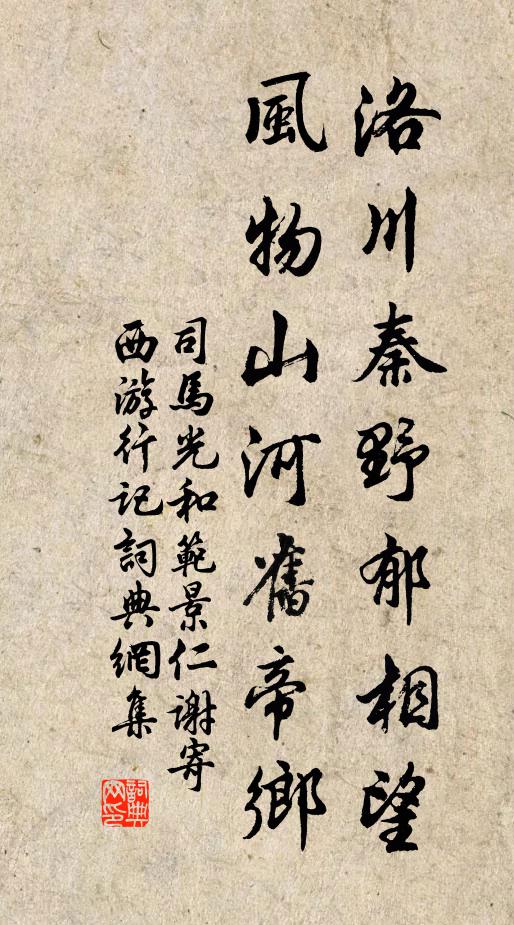 洛川秦野郁相望
風物山河舊帝鄉
司馬光和範景仁謝寄
西游行記詞典網集
詞典网印